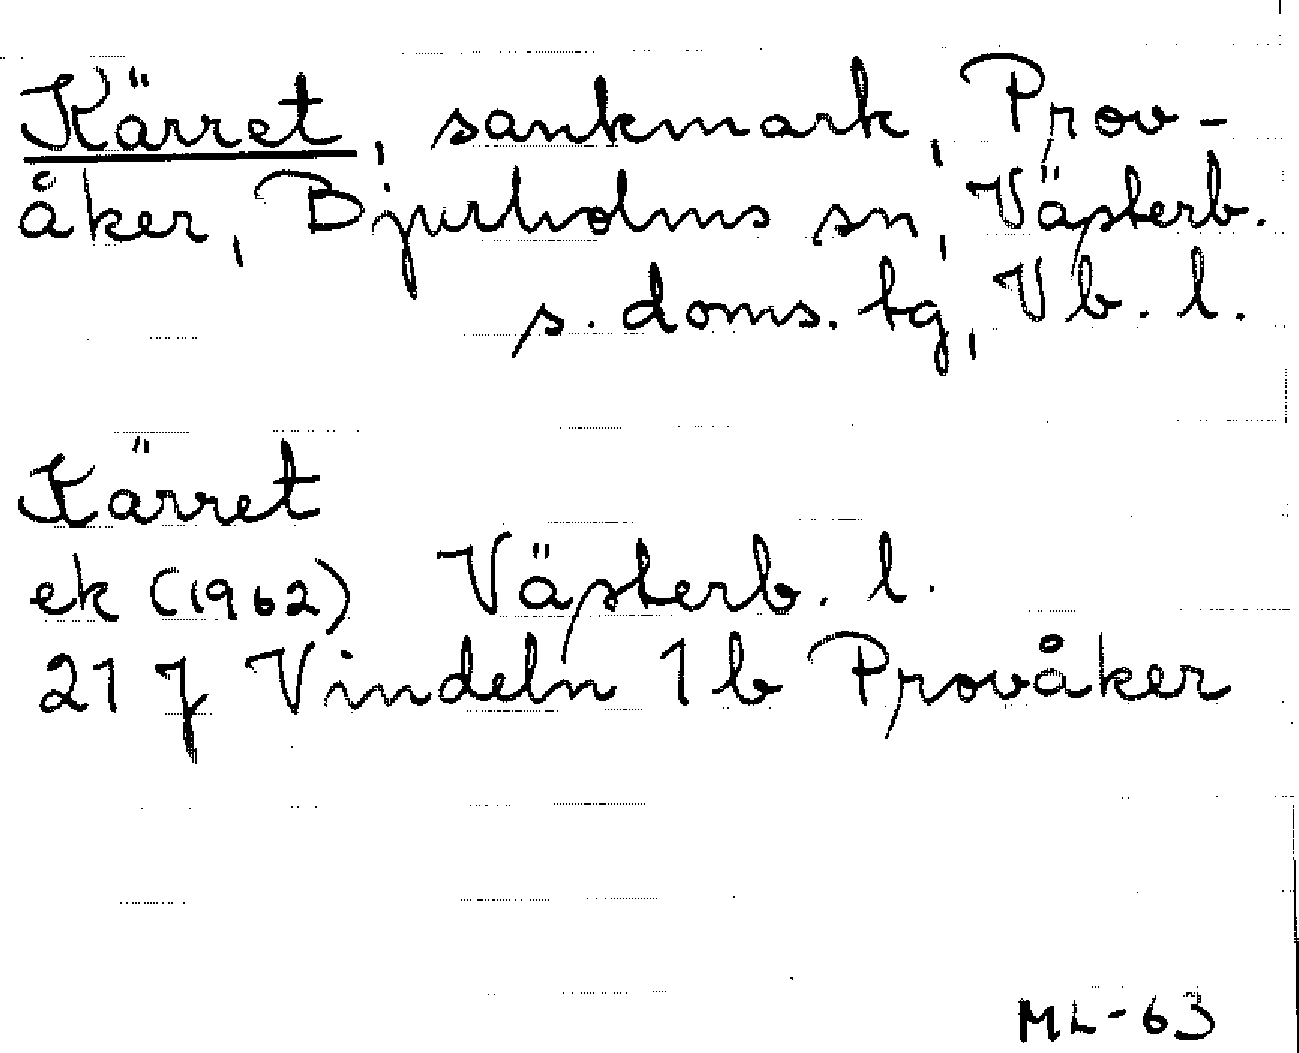 Kärret, sankmark, Prov-
åker, Bjurholms sn, Västerb.
s. doms. tg, Vb. l.
Kärret
ek (1962) Västerb. l.
21 J Vindeln 1 b Provåker
ML-63